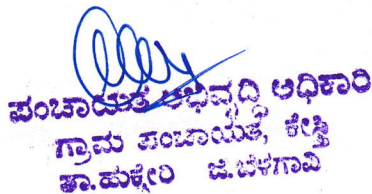 ಪಂಚಾಯತ ಅಭಿವೃದ್ಧಿ ಅಧಿಕಾರಿ
ಗ್ರಾಮ ಪಂಚಾಯತ,
ತಾ.ಹುಕ್ಕೇರಿ ಜಿ.ಬೆಳಗಾವಿ